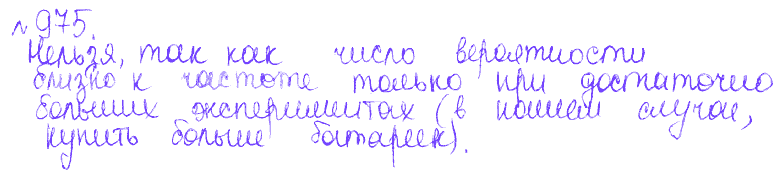 № 975.
Нельзя, так как число вероятности
близко к частоте только при достаточно
больших экспериментах (в нашем случае,
купить больше батареек).